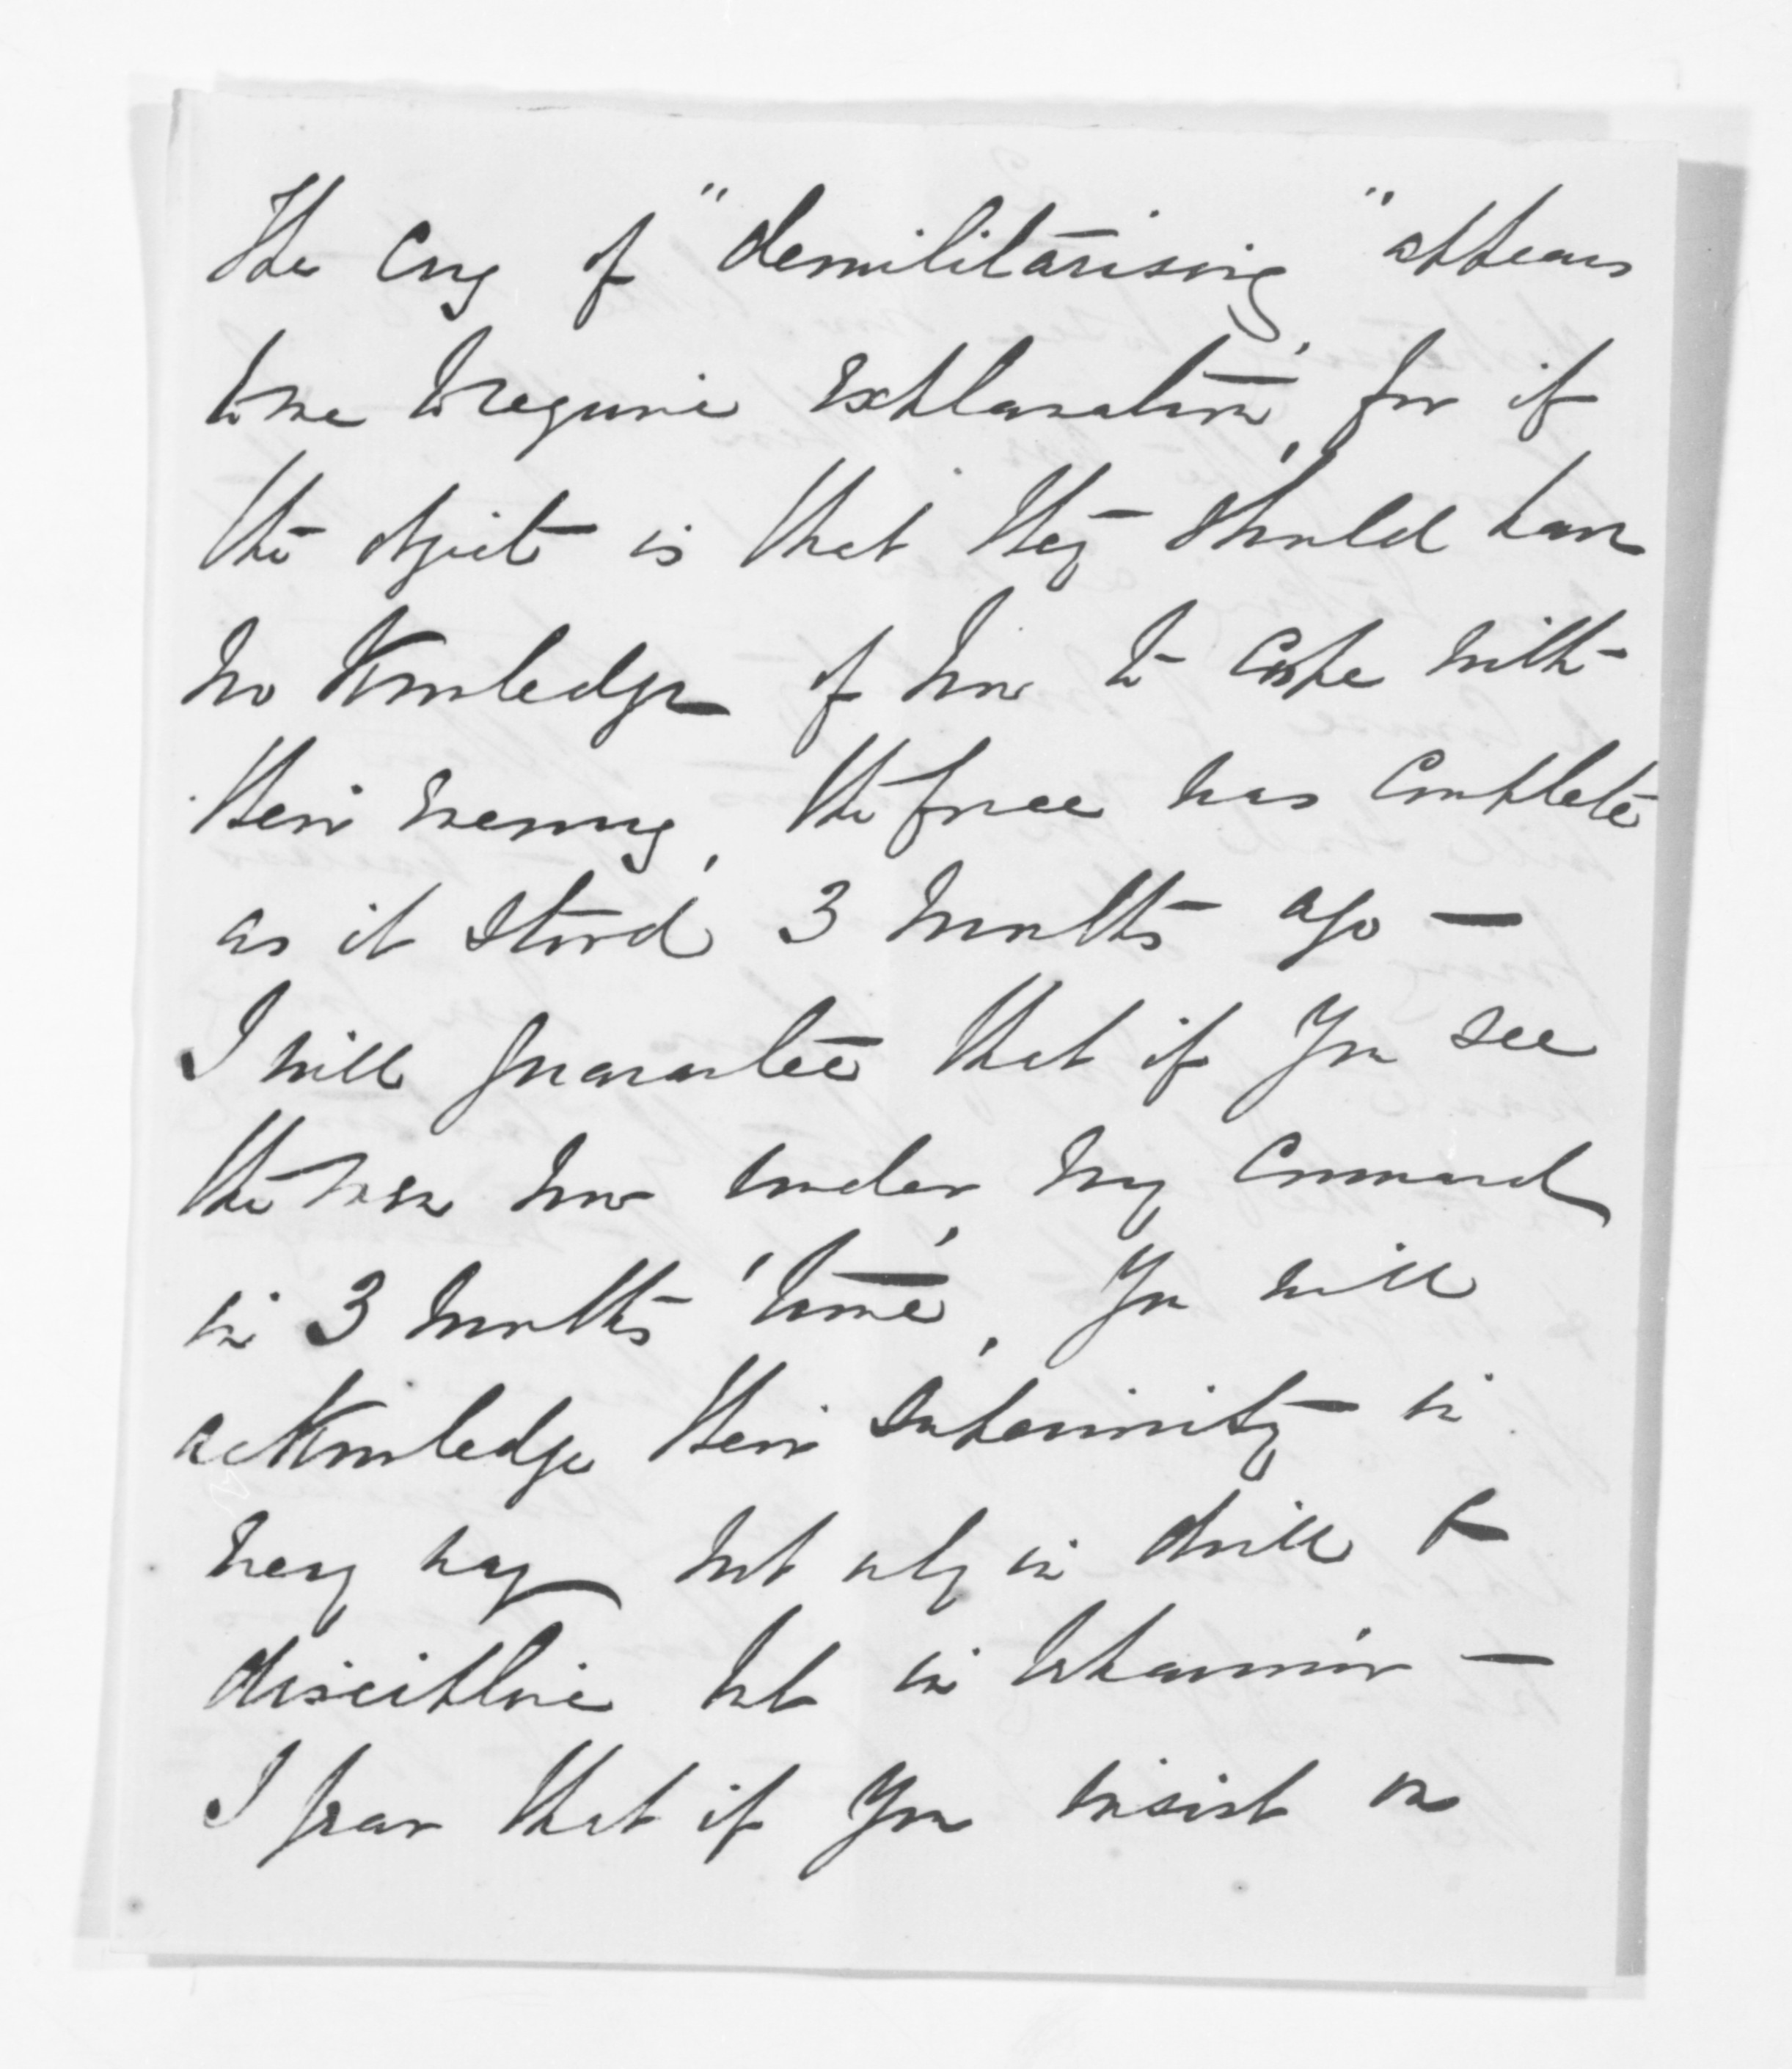 The Cry of "demilitarising" appears
to me to require explanation, for if
the object is that they should have
no knowledge of how to cope with
their enemy, the force was complete
as it stood 3 months ago —
I will guarantee that if you see
the men now under my command
in 3 months' time, you will
acknowledge their superiority in
every way not only in drill &
discipline but in behaviour —
I fear that if you insist on